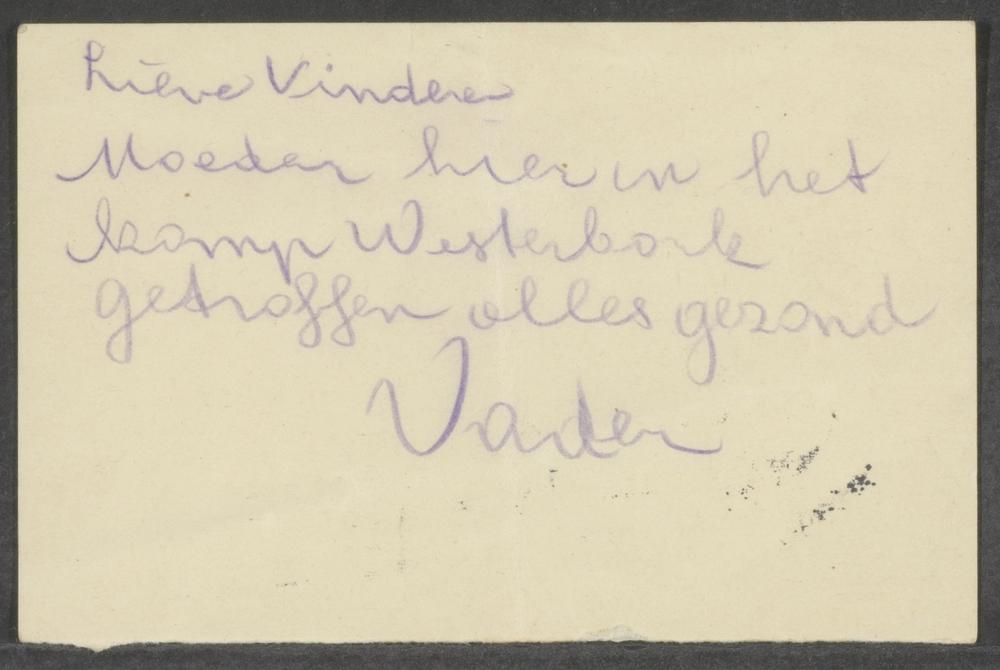 Lieve Kindere
Moeder hier in het
kamp Westerbork
getroffen alles gezond
Vader